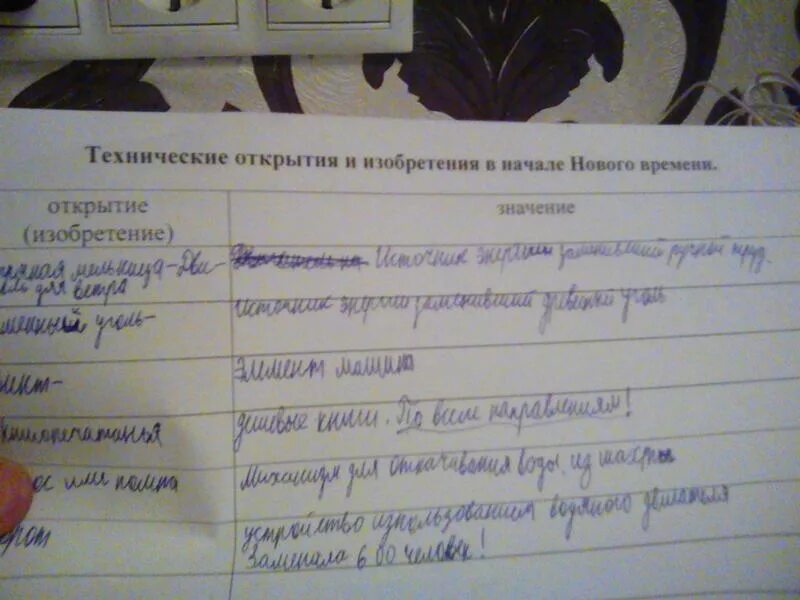 Технические открытия и изобретения в начале Нового времени.
открытие
(изобретение)
значение
мельница - Дви-
для ветра
Источник энергии заменивший ручной труд.
уголь-
Источник энергии заменивший древесный уголь
Элемент машины
книгопечатанья
дешевые книги. По всем направлениям!
ос или помпа
Механизм для откачивания воды из шахты
устройство использованием водяного двигателя
Заменала 600 человек!